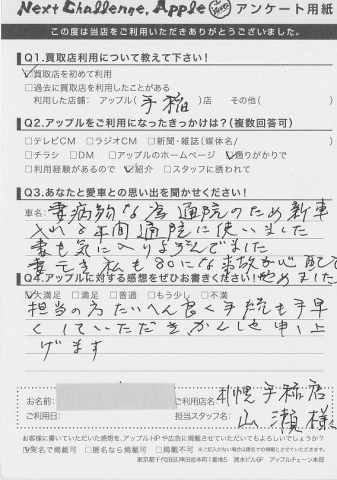 Next Challenge, Apple アンケート用紙
この度は当店をご利用いただきありがとうございました。
Q1.買取店利用について教えて下さい!
☑買取店を初めて利用
□過去に買取店を利用したことがある
利用した店舗: アップル( 手稲 )店 その他( )
Q2.アップルをご利用になったきっかけは?(複数回答可)
□テレビCM □ラジオCM □新聞・雑誌(媒体名/ )
□チラシ □DM □アップルのホームページ ☑通りがかりで
□利用経験があるので ☑紹介 □スタッフに誘われて
Q3.あなたと愛車との思い出を聞かせください!
車名: 妻病弱な為通院のため新車
入れ2年間通院に使いました
妻も気に入りよろんでました
妻亡き私も80になき事故が心配で
やめました
Q4.アップルに対する感想をぜひお書きください!
☑大満足 □満足 □普通 □もう少し □不満
担当の方たいへん良く手続も手早
くしていただきかんしゃ申し上
げます
お名前:
ご利用店名: 札幌手稲店
ご利用日:
担当スタッフ名: 山瀬様
お客様に書いていただいた感想を、アップルHPや広告に掲載させていただいてもよろしいでしょうか?
☑実名で掲載可 □匿名なら掲載可 □掲載不可 ※ご記入がない場合は匿名での掲載とさせていただきます。
東京都千代田区神田岩本町1番地5 清水ビル6F アップルチェーン本部